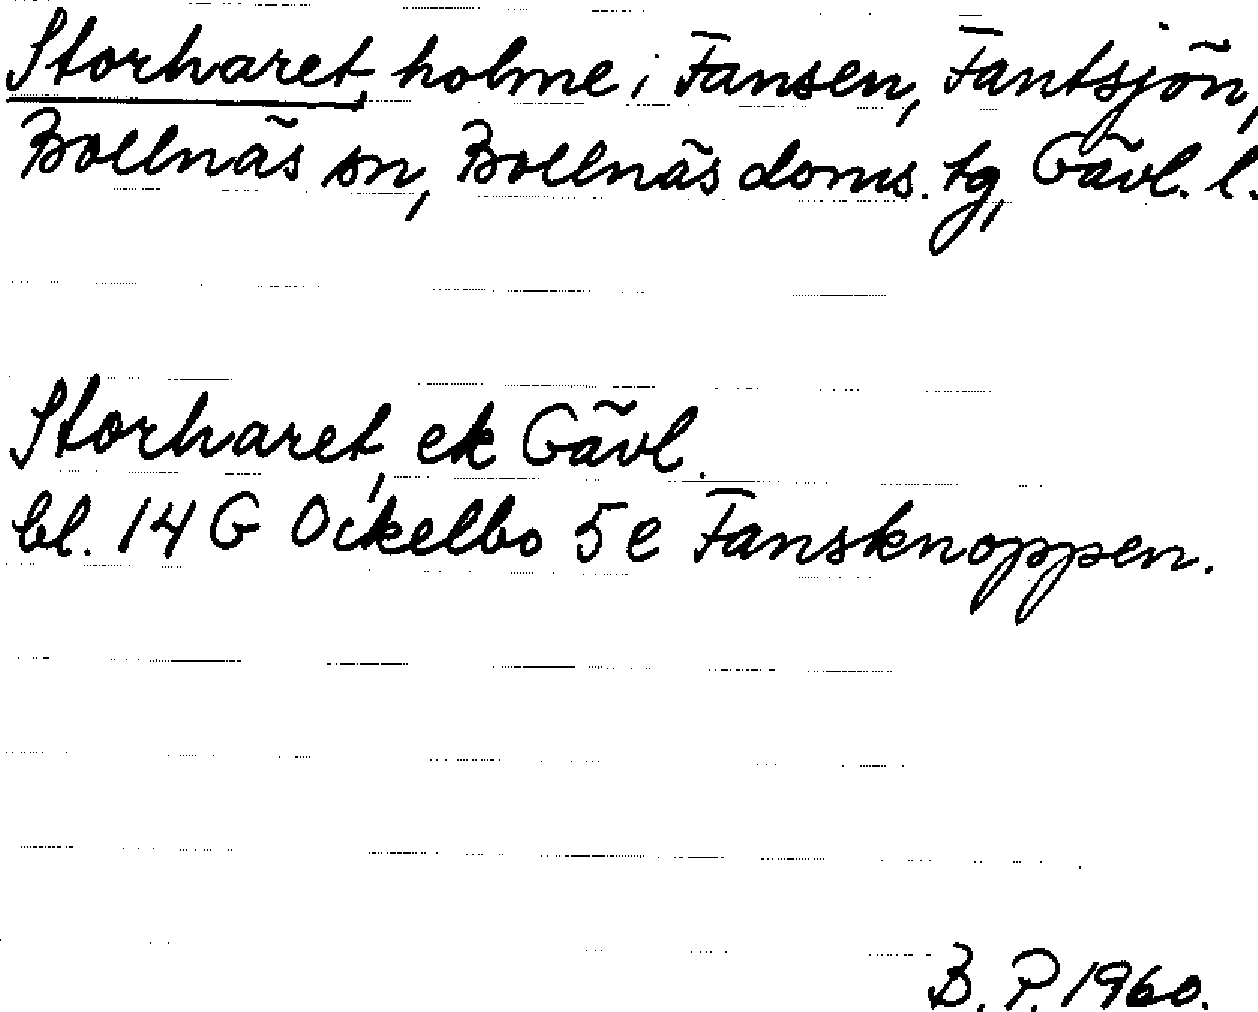 Storharet, holme i Fansen, Fantsjön,
Bollnäs sn, Bollnäs doms. tg, Gävl. l.
Storharet, ek Gävl.
bl. 14 G Ockelbo 5 e Fansknoppen.
B. P. 1960.